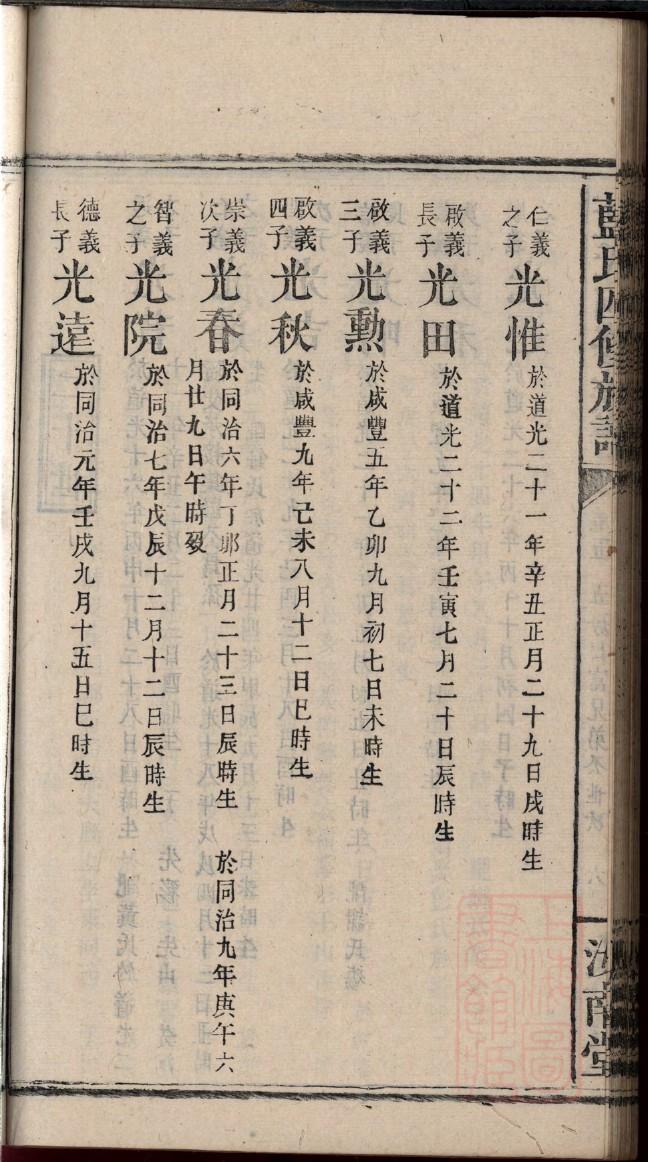 藍氏四修族譜
汝南堂
仁義之子 光惟 於道光二十一年辛丑正月二十九日戌時生
啟義長子 光田 於道光二十二年壬寅七月二十日辰時生
啟義三子 光勳 於咸豐五年乙卯九月初七日未時生
啟義四子 光秋 於咸豐九年己未八月十二日巳時生
崇義次子 光春 於同治六年丁卯正月二十三日辰時生 於同治九年庚午六
月廿九日午時歿
智義之子 光院 於同治七年戊辰十二月十二日辰時生
德義長子 光遠 於同治元年壬戌九月十五日巳時生